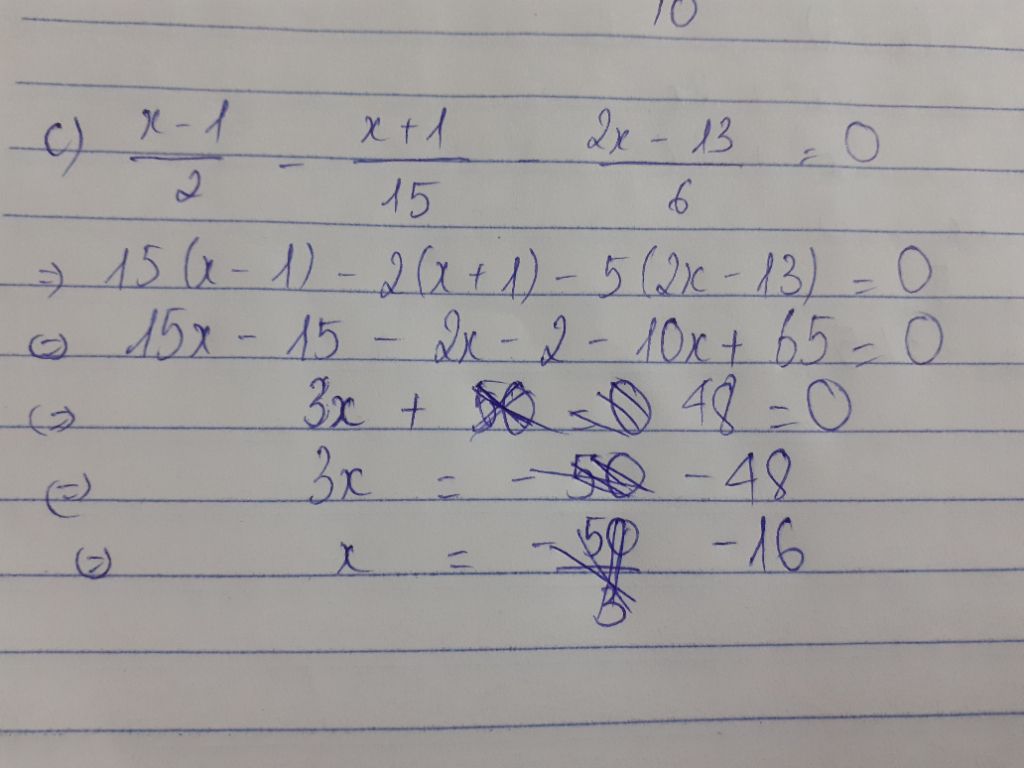 10
c) x - 1 / 2 - x + 1 / 15 - 2x - 13 / 6 = 0
=> 15(x - 1) - 2(x + 1) - 5(2x - 13) = 0
<=> 15x - 15 - 2x - 2 - 10x + 65 = 0
<=> 3x + 48 = 0
<=> 3x = - 48
<=> x = - 16